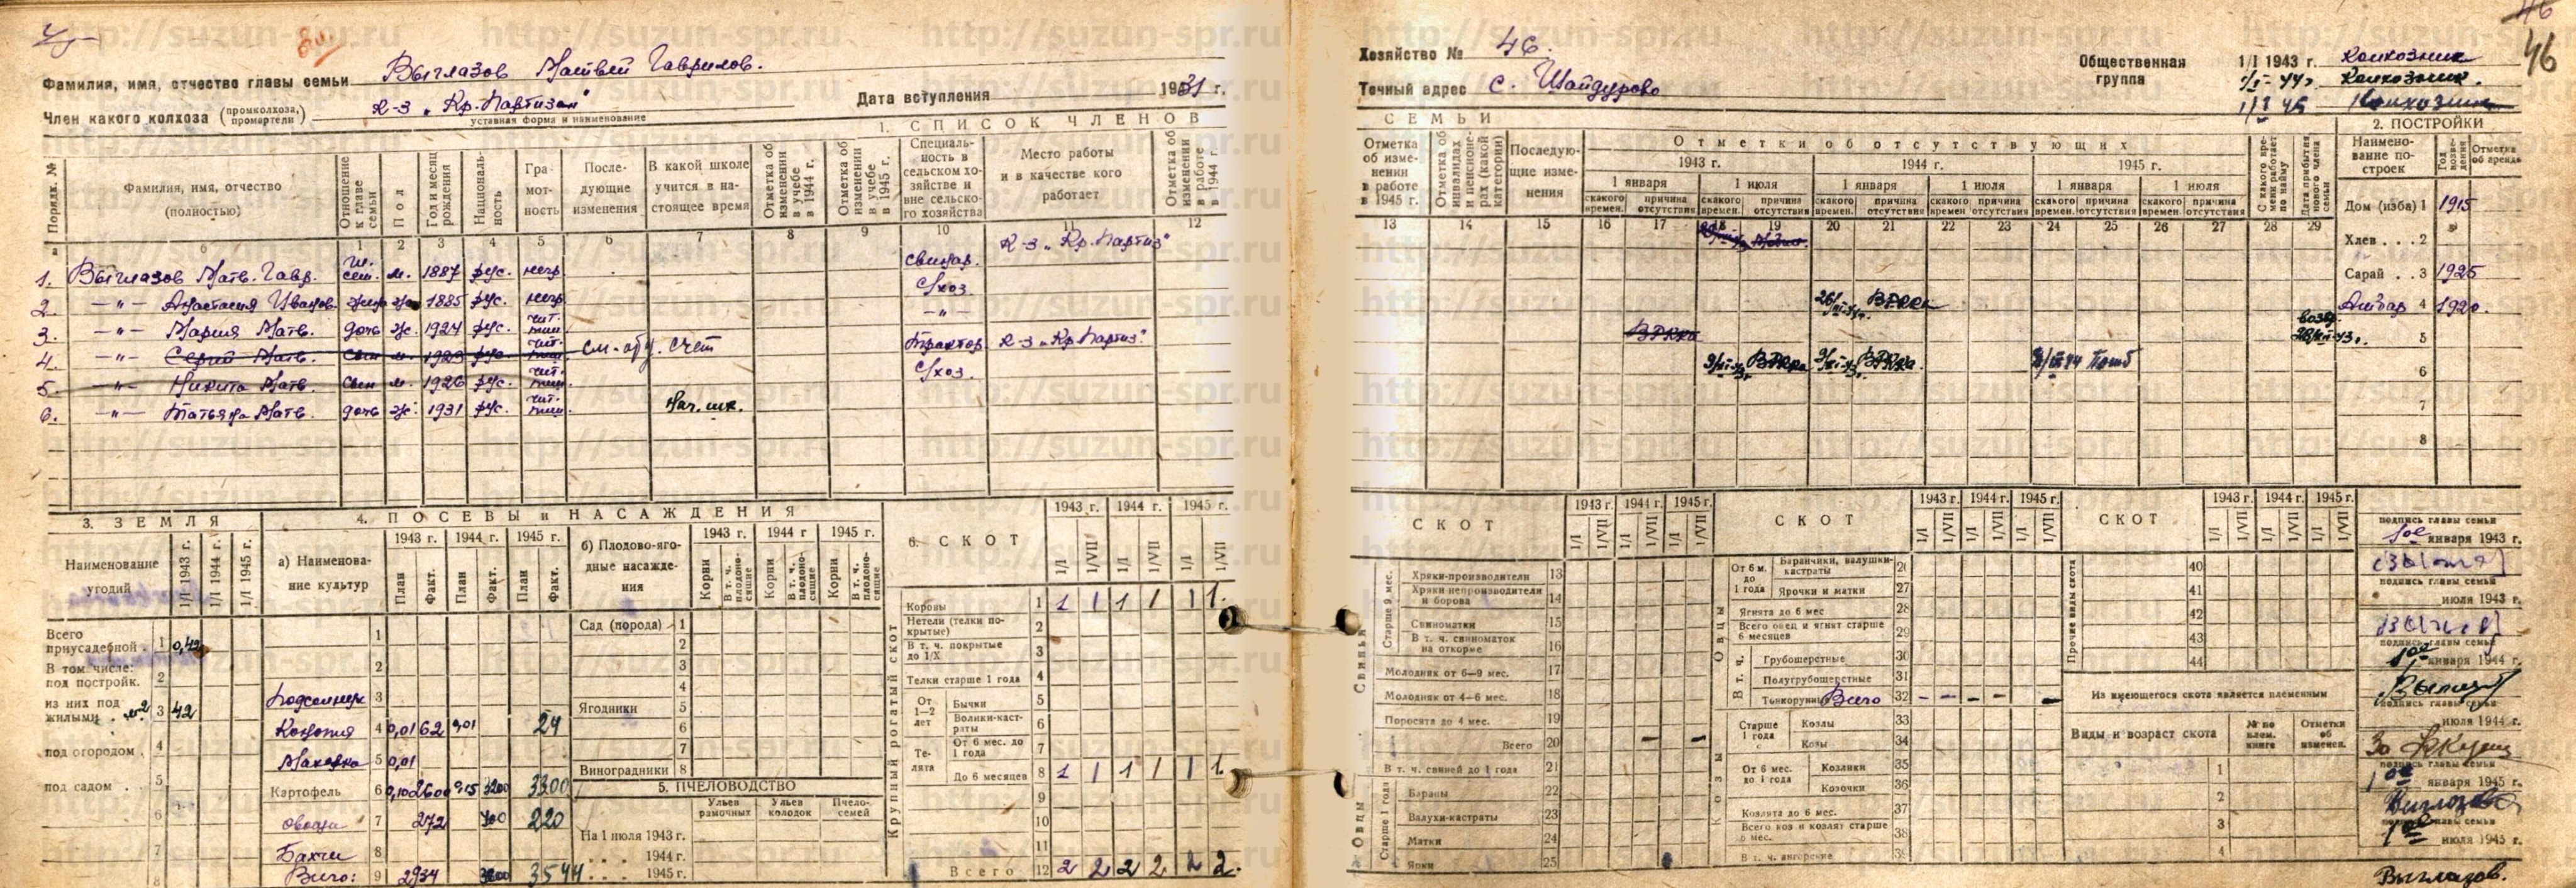 46
46
Фамилия, имя, отчество главы семьи Выглазов Матвей Гаврилов.
Член какого колхоза (промколхоза, промартели) к-з „Кр. Партизан"
уставная форма и наименование
Дата вступления 1931 г.
Хозяйство № 46.
Точный адрес с. Шайдурово
Общественная группа
1/I 1943 г. колхозник
1/I-44 г. колхозник.
1/I 45 колхозник
1. СПИСОК ЧЛЕНОВ СЕМЬИ
2. ПОСТРОЙКИ
Порядк. №
Фамилия, имя, отчество (полностью)
Отношение к главе семьи
Пол
Год и месяц рождения
Национальность
Грамотность
Последующие изменения
В какой школе учится в настоящее время
Отметка об изменении в учебе в 1944 г.
Отметка об изменении в учебе в 1945 г.
Специальность в сельском хозяйстве и вне сельского хозяйства
Место работы и в качестве кого работает
Отметка об изменении в работе в 1944 г.
Отметка об изменении в работе в 1945 г.
Отметка об инвалидах и пенсионерах (какой категории)
Последующие изменения
Отметки об отсутствующих
1943 г. 1944 г. 1945 г.
1 января 1 июля 1 января 1 июля 1 января 1 июля
с какого времен. причина отсутствия с какого времен. причина отсутствия с какого времен. причина отсутствия с какого времен. причина отсутствия с какого времен. причина отсутствия с какого времен. причина отсутствия
С какого времени работает по найму
Дата прибытия нового члена семьи
Наименование построек
Год возведения
Отметка об аренде
1 2 3 4 5 6 7 8 9 10 11 12
13 14 15 16 17 18 19 20 21 22 23 24 25 26 27 28 29
Дом (изба) 1 1915
Хлев . . . 2
Сарай . . 3 1925
Амбар 4 1920.
5
6
7
8
1. Выглазов Матв. Гавр. гл. сем. м. 1887 рус. негр. свинар. к-з „Кр. Партиз"
2. —"— Анастасия Иванов. жена ж. 1885 рус. негр. с/хоз
3. —"— Мария Матв. дочь ж. 1924 рус. чит. пиш. —"— ВРККА
4. —"— Сергей Матв. сын м. 1923 рус. см. обр. счет Трактор к-з „Кр. Партиз" ВРККА
5. —"— Никита Матв. сын м. 1926 рус. чит. пиш. с/хоз. ВРККА ВРККА
6. —"— Татьяна Матв. дочь ж. 1931 рус. чит. пиш. Нач. шк.
3. ЗЕМЛЯ
Наименование угодий
1/I 1943 г. 1/I 1944 г. 1/I 1945 г.
Всего приусадебной . 1 0,42
В том числе:
под постройк. 2
из них под жилыми . м2 3 42
под огородом . 4
под садом . . 5
6
7
8
4. ПОСЕВЫ и НАСАЖДЕНИЯ
а) Наименование культур
1943 г. 1944 г. 1945 г.
План Факт. План Факт. План Факт.
1
2
Подсолнух 3
Конопля 4 0,01 62 0,01 24
Махорка 5 0,01
Картофель 6 0,10 2600 0,15 3200 3300
овощи 7 272 400 220
Бахчи 8
Всего: 9 2934 3544
б) Плодово-ягодные насаждения
1943 г. 1944 г 1945 г.
Корни В т. ч. плодоносящие Корни В т. ч. плодоносящие Корни В т. ч. плодоносящие
Сад (порода) 1
2
3
4
Ягодники 5
6
7
Виноградники 8
5. ПЧЕЛОВОДСТВО
Ульев рамочных Ульев колодок Пчелосемей
На 1 июля 1943 г.
. . . . 1944 г.
. . . . 1945 г.
6. СКОТ
1943 г. 1944 г. 1945 г.
1/I 1/VII 1/I 1/VII 1/I 1/VII
Крупный рогатый скот
Коровы 1 1 1 1 1 1 1.
Нетели (телки покрытые) 2
В т. ч. покрытые до 1/X 3
Телки старше 1 года 4
От 1—2 лет
Бычки 5
Волики-кастраты 6
Телята
От 6 мес. до 1 года 7
До 6 месяцев 8 1 1 1 1 1 1
9
10
11
Всего 12 2 2 2 2 2 2.
СКОТ
1943 г. 1944 г. 1945 г.
1/I 1/VII 1/I 1/VII 1/I 1/VII
Свиньи
Старше 9 мес.
Хряки-производители 13
Хряки непроизводители и борова 14
Свиноматки 15
В т. ч. свиноматок на откорме 16
Молодняк от 6—9 мес. 17
Молодняк от 4—6 мес. 18
Поросята до 4 мес. 19
Всего 20 – –
В т. ч. свиней до 1 года 21
Овцы
Старше 1 года
Бараны 22
Валухи-кастраты 23
Матки 24
Ярки 25
СКОТ
1943 г. 1944 г. 1945 г.
1/I 1/VII 1/I 1/VII 1/I 1/VII
Овцы
От 6 м. до 1 года
Баранчики, валушки-кастраты 26
Ярочки и матки 27
Ягнята до 6 мес 28
Всего овец и ягнят старше 6 месяцев 29
В т. ч.
Грубошерстные 30
Полугрубошерстные 31
Тонкорунные Всего 32 – – – – –
Козы
Старше 1 года
Козлы 33
Козы 34
От 6 мес. до 1 года
Козлики 35
Козочки 36
Козлята до 6 мес. 37
Всего коз и козлят старше 6 мес. 38
В т. ч. ангорские 39
СКОТ
1943 г. 1944 г. 1945 г.
1/I 1/VII 1/I 1/VII 1/I 1/VII
Прочие виды скота
40
41
42
43
44
Из имеющегося скота является племенным
Виды и возраст скота
№ по плем. книге
Отметки об изменен.
1
2
3
4
подпись главы семьи
1ое января 1943 г.
подпись главы семьи
июля 1943 г.
подпись главы семьи
1ое января 1944 г.
подпись главы семьи
июля 1944 г.
подпись главы семьи
1ое января 1945 г.
Выглазов
подпись главы семьи
1ое июля 1945 г.
Выглазов.
http://suzun-spr.ru